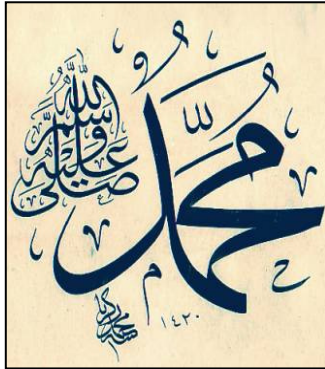 مُحَمَّدٌ
صلى الله عليه وسلم
١٤٢٠